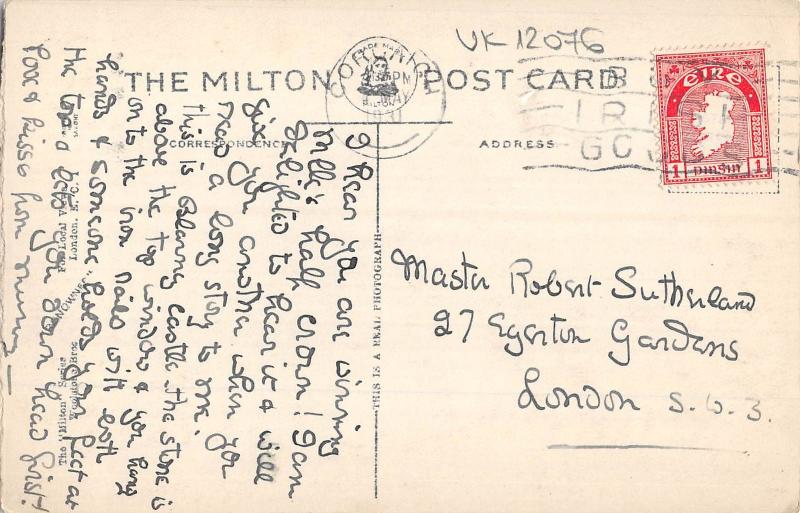 UK 12076
THE MILTON POST CARD
CORCAIGH
éire
1 PINGIN 1
CORRESPONDENCE
ADDRESS
THIS IS A REAL PHOTOGRAPH
I hear you are winning
Mlle's half crown! I am
delighted to hear it & will
give you another when you
read a long story to me.
This is Blarney Castle the stone is
above the top window & you hang
on to the iron rails with both
hands & someone holds your feet at
the top & lets you down head first!
Love & kisses from Mummy—
Master Robert Sutherland
27 Egerton Gardens
London S.W.3.
The "Milton" Series
London, E.C.